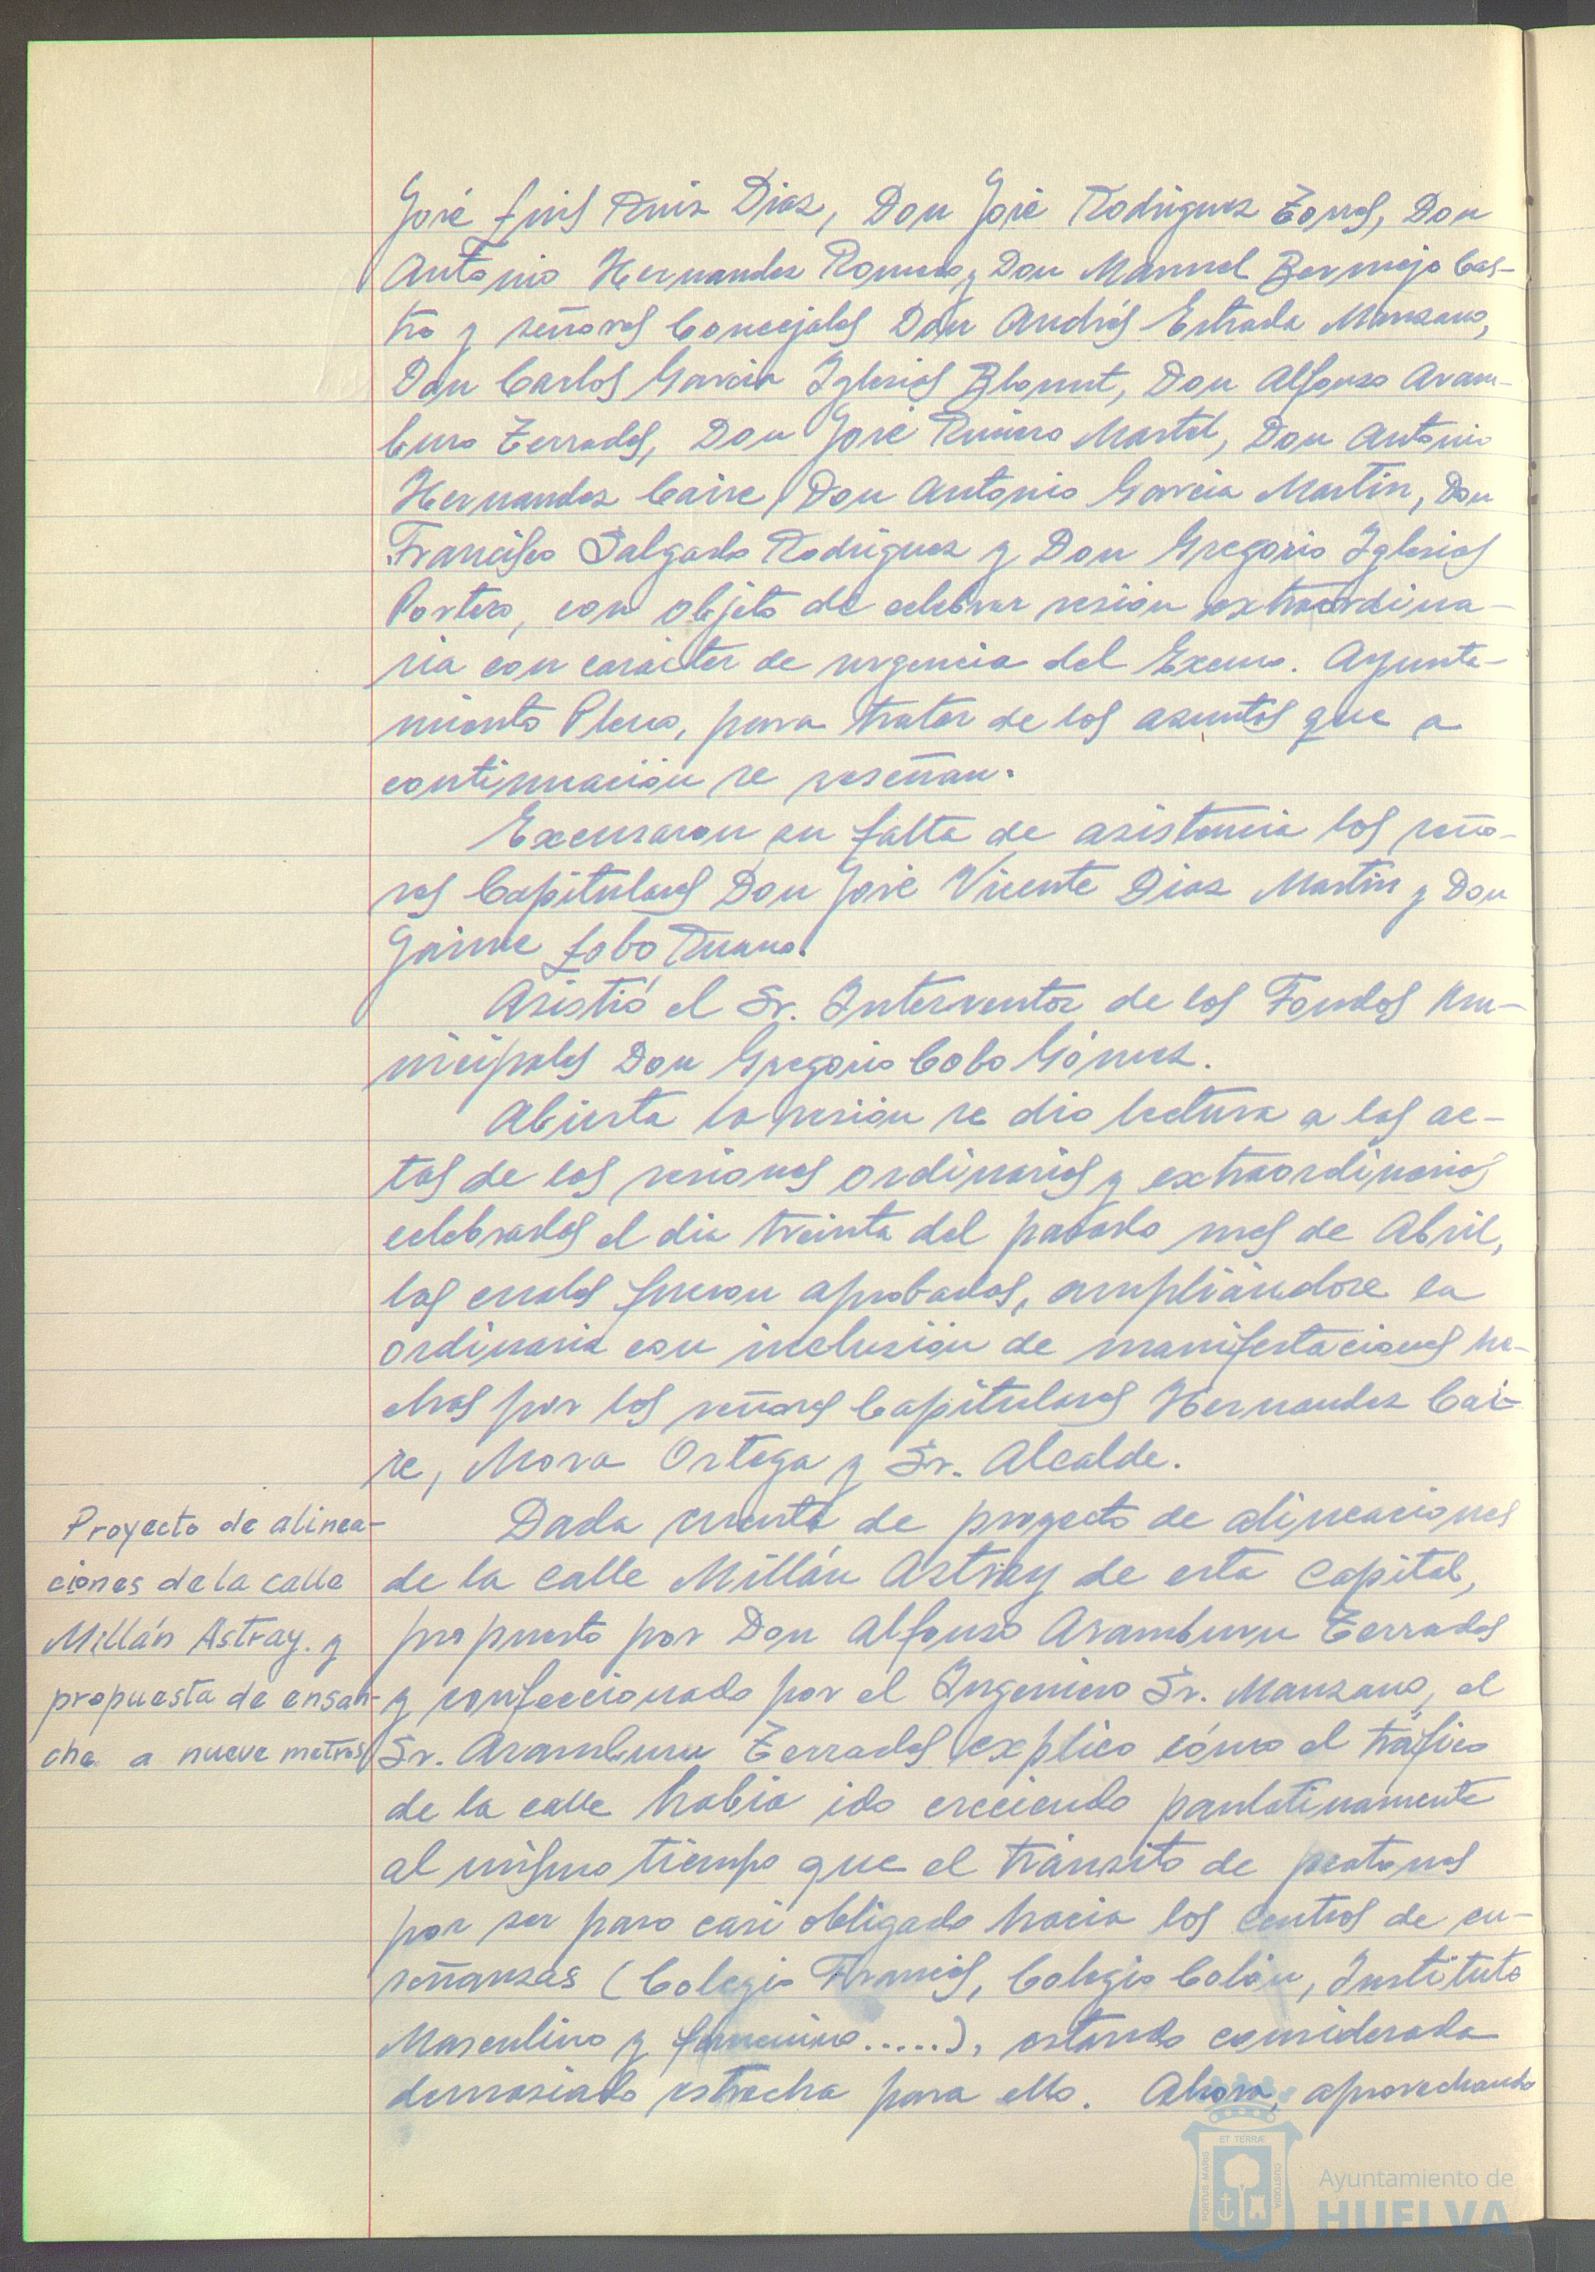 José Luis Ruiz Diaz, Don José Rodriguez Torres, Don
Antonio Hernandez Romero y Don Manuel Bermejo Cas-
tro y señores Concejales Don Andrés Estrada Manzano,
Don Carlos Garcia Iglesias Blount, Don Alfonso Aram-
buro Terrades, Don José Rivero Martel, Don Antonio
Hernandez Caire, Don Antonio Garcia Martin, Don
Francisco Salgado Rodriguez y Don Gregorio Iglesias
Portero, con objeto de celebrar sesión extraordina-
ria con carácter de urgencia del Excmo. Ayunta-
miento Pleno, para tratar de los asuntos que a
continuación se reseñan.
Excusaron su falta de asistencia los seño-
res Capitulares Don José Vicente Diaz Martin y Don
Jaime Lobo Ruano.
Asistió el Sr. Interventor de los Fondos Mu-
nicipales Don Gregorio Cobo Gómez.
Abierta la sesión se dio lectura a las ac-
tas de las sesiones ordinarias y extraordinarias
celebradas el dia treinta del pasado mes de Abril,
las cuales fueron aprobadas, ampliándose la
ordinaria con inclusión de manifestaciones he-
chas por los señores Capitulares Hernandez Cai-
re, Mora Ortega y Sr. Alcalde.
Proyecto de alinea-
ciones de la calle
Millán Astray. y
propuesta de ensan-
che a nueve metros
Dada cuenta de proyecto de alineaciones
de la calle Millán Astray de esta Capital,
propuesto por Don Alfonso Aramburu Terrades
y confeccionado por el Ingeniero Sr. Manzano, el
Sr. Aramburu Terrades explico cómo el tráfico
de la calle habia ido creciendo paulatinamente
al mismo tiempo que el tránsito de peatones
por ser paso casi obligado hacia los centros de en-
señanzas (Colegio Francés, Colegio Colón, Instituto
Masculino y femenino.....), estando considerada
demasiado estrecha para ello. Ahora, aprovechando
PORTUS MARIS
ET TERRÆ
CUSTODIA
Ayuntamiento de
HUELVA